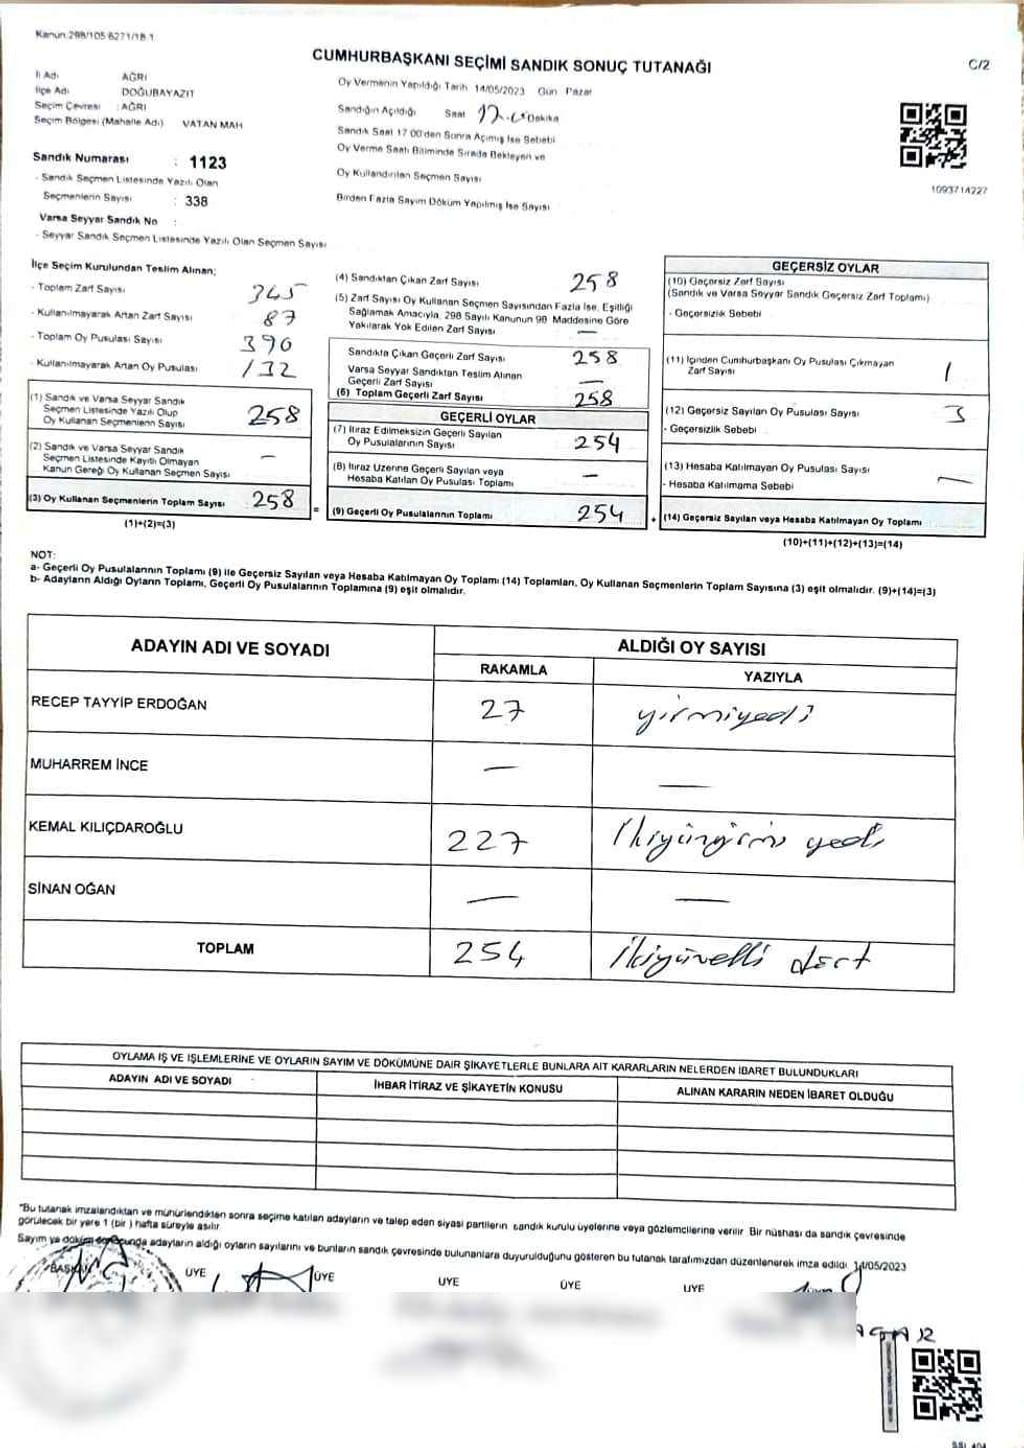 Kanun:298/105 6271/18.1
CUMHURBAŞKANI SEÇİMİ SANDIK SONUÇ TUTANAĞI
C/2
İl Adı AĞRI
İlçe Adı DOĞUBAYAZIT
Seçim Çevresi : AĞRI
Seçim Bölgesi (Mahalle Adı) VATAN MAH
Sandık Numarası : 1123
- Sandık Seçmen Listesinde Yazılı Olan
Seçmenlerin Sayısı : 338
Varsa Seyyar Sandık No :
- Seyyar Sandık Seçmen Listesinde Yazılı Olan Seçmen Sayısı
Oy Vermenin Yapıldığı Tarih 14/05/2023 Gün Pazar
Sandığın Açıldığı Saat Dakika
Sandık Saat 17 00'den Sonra Açılmış İse Sebebi
Oy Verme Saati Bitiminde Sırada Bekleyen ve
Oy Kullandırılan Seçmen Sayısı
Birden Fazla Sayım Döküm Yapılmış İse Sayısı
1093714227
İlçe Seçim Kurulundan Teslim Alınan;
- Toplam Zarf Sayısı 345
- Kullanılmayarak Artan Zarf Sayısı 87
- Toplam Oy Pusulası Sayısı 390
- Kullanılmayarak Artan Oy Pusulası 132
(1) Sandık ve Varsa Seyyar Sandık
Seçmen Listesinde Yazılı Olup
Oy Kullanan Seçmenlerin Sayısı 258
(2) Sandık ve Varsa Seyyar Sandık
Seçmen Listesinde Kayıtlı Olmayan
Kanun Gereği Oy Kullanan Seçmen Sayısı —
(3) Oy Kullanan Seçmenlerin Toplam Sayısı 258
(1)+(2)=(3)
(4) Sandıktan Çıkan Zarf Sayısı 258
(5) Zarf Sayısı Oy Kullanan Seçmen Sayısından Fazla İse, Eşitliği
Sağlamak Amacıyla, 298 Sayılı Kanunun 98 Maddesine Göre
Yakılarak Yok Edilen Zarf Sayısı —
Sandıkta Çıkan Geçerli Zarf Sayısı 258
Varsa Seyyar Sandıktan Teslim Alınan
Geçerli Zarf Sayısı —
(6) Toplam Geçerli Zarf Sayısı 258
GEÇERLİ OYLAR
(7) İtiraz Edilmeksizin Geçerli Sayılan
Oy Pusulalarının Sayısı 254
(8) İtiraz Üzerine Geçerli Sayılan veya
Hesaba Katılan Oy Pusulası Toplamı —
= (9) Geçerli Oy Pusulalarının Toplamı 254
GEÇERSİZ OYLAR
(10) Geçersiz Zarf Sayısı
(Sandık ve Varsa Seyyar Sandık Geçersiz Zarf Toplamı)
- Geçersizlik Sebebi
(11) İçinden Cumhurbaşkanı Oy Pusulası Çıkmayan
Zarf Sayısı 1
(12) Geçersiz Sayılan Oy Pusulası Sayısı 3
- Geçersizlik Sebebi
(13) Hesaba Katılmayan Oy Pusulası Sayısı
- Hesaba Katılmama Sebebi —
+ (14) Geçersiz Sayılan veya Hesaba Katılmayan Oy Toplamı
(10)+(11)+(12)+(13)=(14)
NOT:
a- Geçerli Oy Pusulalarının Toplamı (9) ile Geçersiz Sayılan veya Hesaba Katılmayan Oy Toplamı (14) Toplamları, Oy Kullanan Seçmenlerin Toplam Sayısına (3) eşit olmalıdır. (9)+(14)=(3)
b- Adayların Aldığı Oyların Toplamı, Geçerli Oy Pusulalarının Toplamına (9) eşit olmalıdır.
ADAYIN ADI VE SOYADI ALDIĞI OY SAYISI
RAKAMLA YAZIYLA
RECEP TAYYİP ERDOĞAN 27 yirmiyedi
MUHARREM İNCE — —
KEMAL KILIÇDAROĞLU 227 İkiyüzyirmi yedi
SİNAN OĞAN — —
TOPLAM 254 İkiyüzelli dört
OYLAMA İŞ VE İŞLEMLERİNE VE OYLARIN SAYIM VE DÖKÜMÜNE DAİR ŞİKAYETLERLE BUNLARA AİT KARARLARIN NELERDEN İBARET BULUNDUKLARI
ADAYIN ADI VE SOYADI İHBAR İTİRAZ VE ŞİKAYETİN KONUSU ALINAN KARARIN NEDEN İBARET OLDUĞU
"Bu tutanak imzalandıktan ve mühürlendikten sonra seçime katılan adayların ve talep eden siyasi partilerin sandık kurulu üyelerine veya gözlemcilerine verilir Bir nüshası da sandık çevresinde
görülecek bir yere 1 (bir ) hafta süreyle asılır.
Sayım ve döküm sonucunda adayların aldığı oyların sayılarını ve bunların sandık çevresinde bulunanlara duyurulduğunu gösteren bu tutanak tarafımızdan düzenlenerek imza edildi. 14/05/2023
BAŞKAN ÜYE ÜYE ÜYE ÜYE ÜYE